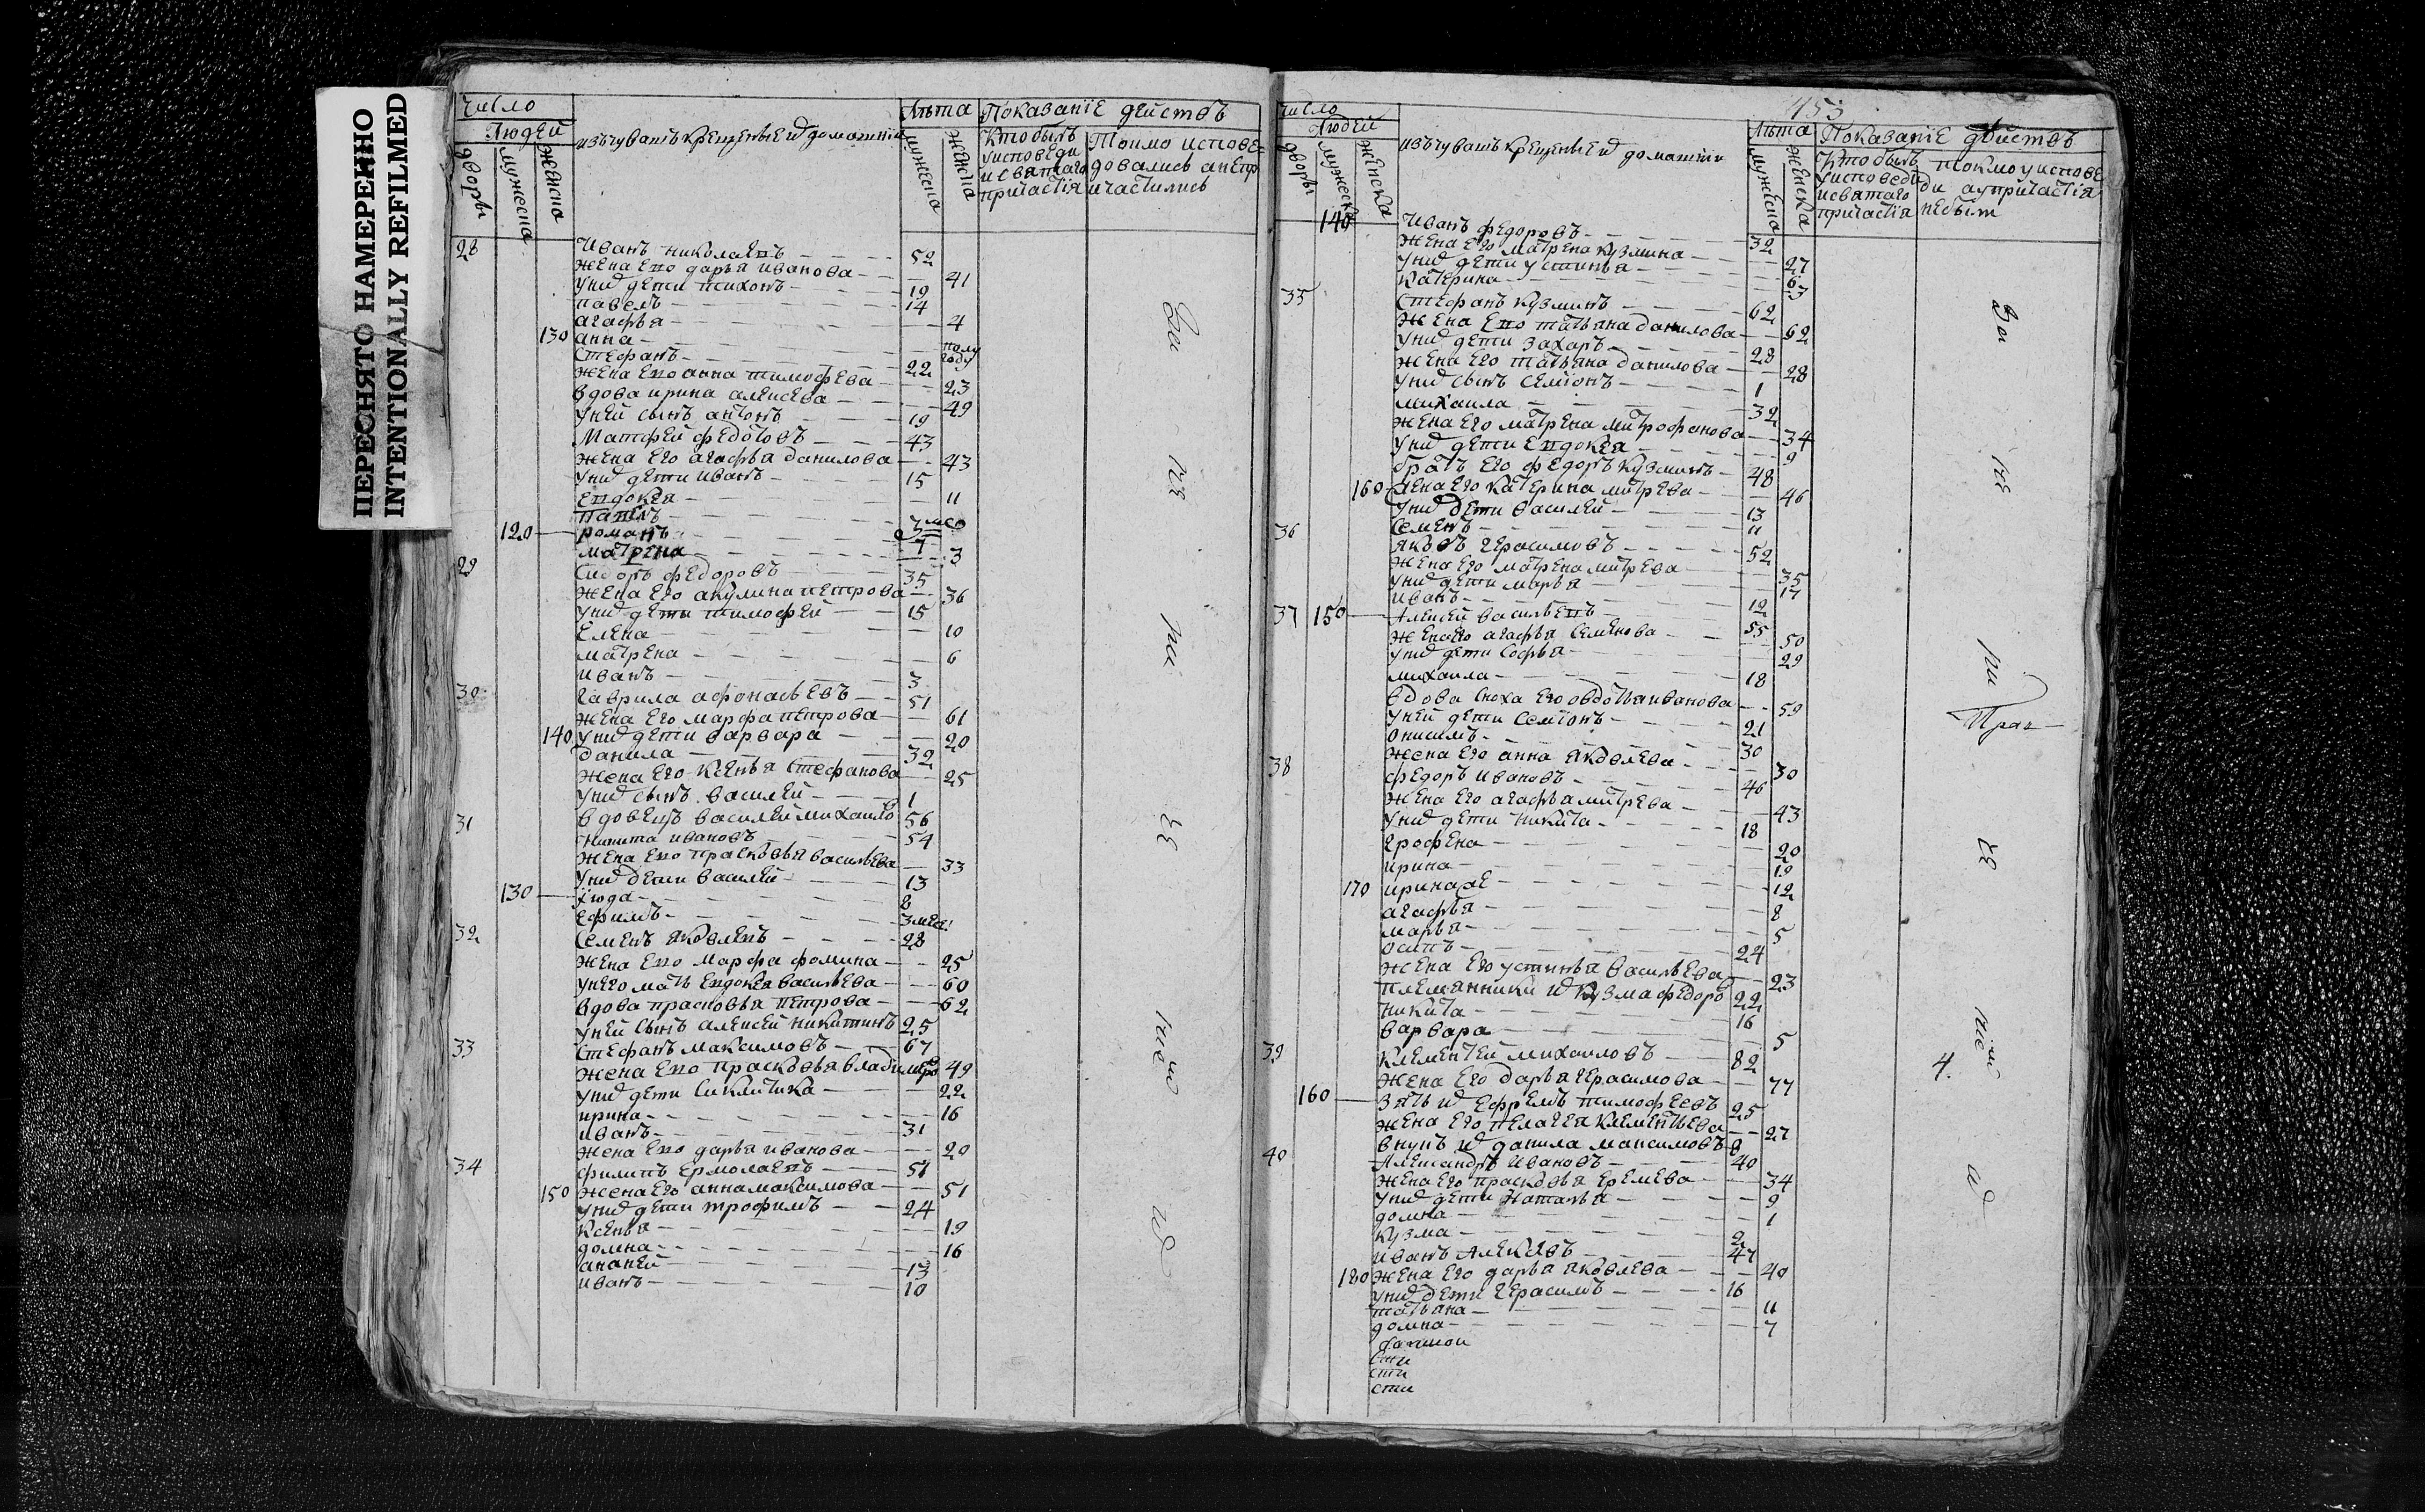 ПЕРЕСНЯТО НАМЕРЕННО
INTENTIONALLY REFILMED
число
Людей
дворы
мужеска
женска
изъ чувашъ крещеные и домашнїи
Лѣта
мужеска
женска
Показанїе действъ
Кто былъ у исповеди и святаго причастїя
Токмо исповедовались а непричастились
28 Иванъ николаевъ 52
жена ево дарья иванова 41
у них дети тихонъ 19
павелъ 14
агафья 4
130 анна полу году
Стефанъ 22
жена ево анна тимофева 23
вдова ирина алексева 49
у ней сынъ антонъ 19
Матфей федотовъ 43
жена его агафья данилова 43
у них дети иванъ 15
евдокея 11
павелъ
120 романъ 7
матрена 3
29 Сидоръ федоровъ 35
жена его акулина петрова 36
у них дети тимофей 15
елена 10
матрена 6
иванъ 3
30 гаврила афонасьевъ 51
жена его марфа петрова 61
140 у них дети варвара 20
данила 32
жена его ксенья стефанова 25
у них сынъ василей 1
31 вдовецъ василей михаило 56
никита ивановъ 54
жена ево прасковья васильева 33
у них дети василей 13
130 июда 8
ефимъ 3 меся
32 Семенъ яковлевъ 28
жена ево марфа фомина 25
у него мать евдокея васильева 60
вдова прасковья петрова 62
у ней сынъ алексей никитинъ 25
33 Стефанъ максимовъ 67
жена ево прасковья владимеро 49
у них дети 22
ирина 16
иванъ 31
жена ево дарья иванова 20
34 филипъ ермолаевъ 51
150 жена его анна максимова 51
у них дети трофимъ 24
ксенья 19
домна 16
ананей 13
иванъ 10
453
число
Людей
дворы
мужеска
женска
изъ чувашъ крещеные и домашнїи
Лѣта
мужеска
женска
Показанїе действъ
Кто былъ у исповеди и святаго причастїя
токмо у исповеди а у причастїя небыл
140 Иванъ федоровъ 32
жена его матрена кузмина 27
у них дети устинья 6
катерина 3
35 Стефанъ кузминъ 62
жена ево татьяна данилова 62
у них дети захаръ 28
жена его татьяна данилова 28
у них сынъ семїонъ 1
михаила 32
жена его матрена митрофанова 34
у них дети евдокея 9
братъ его федоръ кузминъ 48
160 жена его катерина митрева 46
у них дети василей 13
семенъ 11
36 яковъ герасимовъ 52
жена его матрена митрева 35
у них дети марья 17
иванъ 12
37 150 Алексей васильевъ 55
жена его агафья семенова 50
у них дети софья 29
михаила 18
вдова сноха его овдотья иванова 59
у ней дети семїонъ 21
онисимъ 30
жена его анна яковлева 30
38 федоръ ивановъ 46
жена его агафья митрева 43
у них дети никита 18
ерофена 20
ирина 19
170 иринае 12
агафья 8
марья 5
осипъ 24
жена его устинья васильева 23
племянники их кузма федоро 22
никита 16
варвара 5
39 клементей михаиловъ 82
жена его дарья герасимова 77
160 зять их ефремъ тимофеевъ 25
жена его пелагея клементьева 27
внукъ их данила максимовъ 8
40 Александръ ивановъ 40
жена его прасковья еремева 34
у них дети наталья 9
домна 1
кузма 2
иванъ алексевъ 47
180 жена его дарья яковлева 40
у них дети герасимъ 16
татьяна 11
домна 7
4.